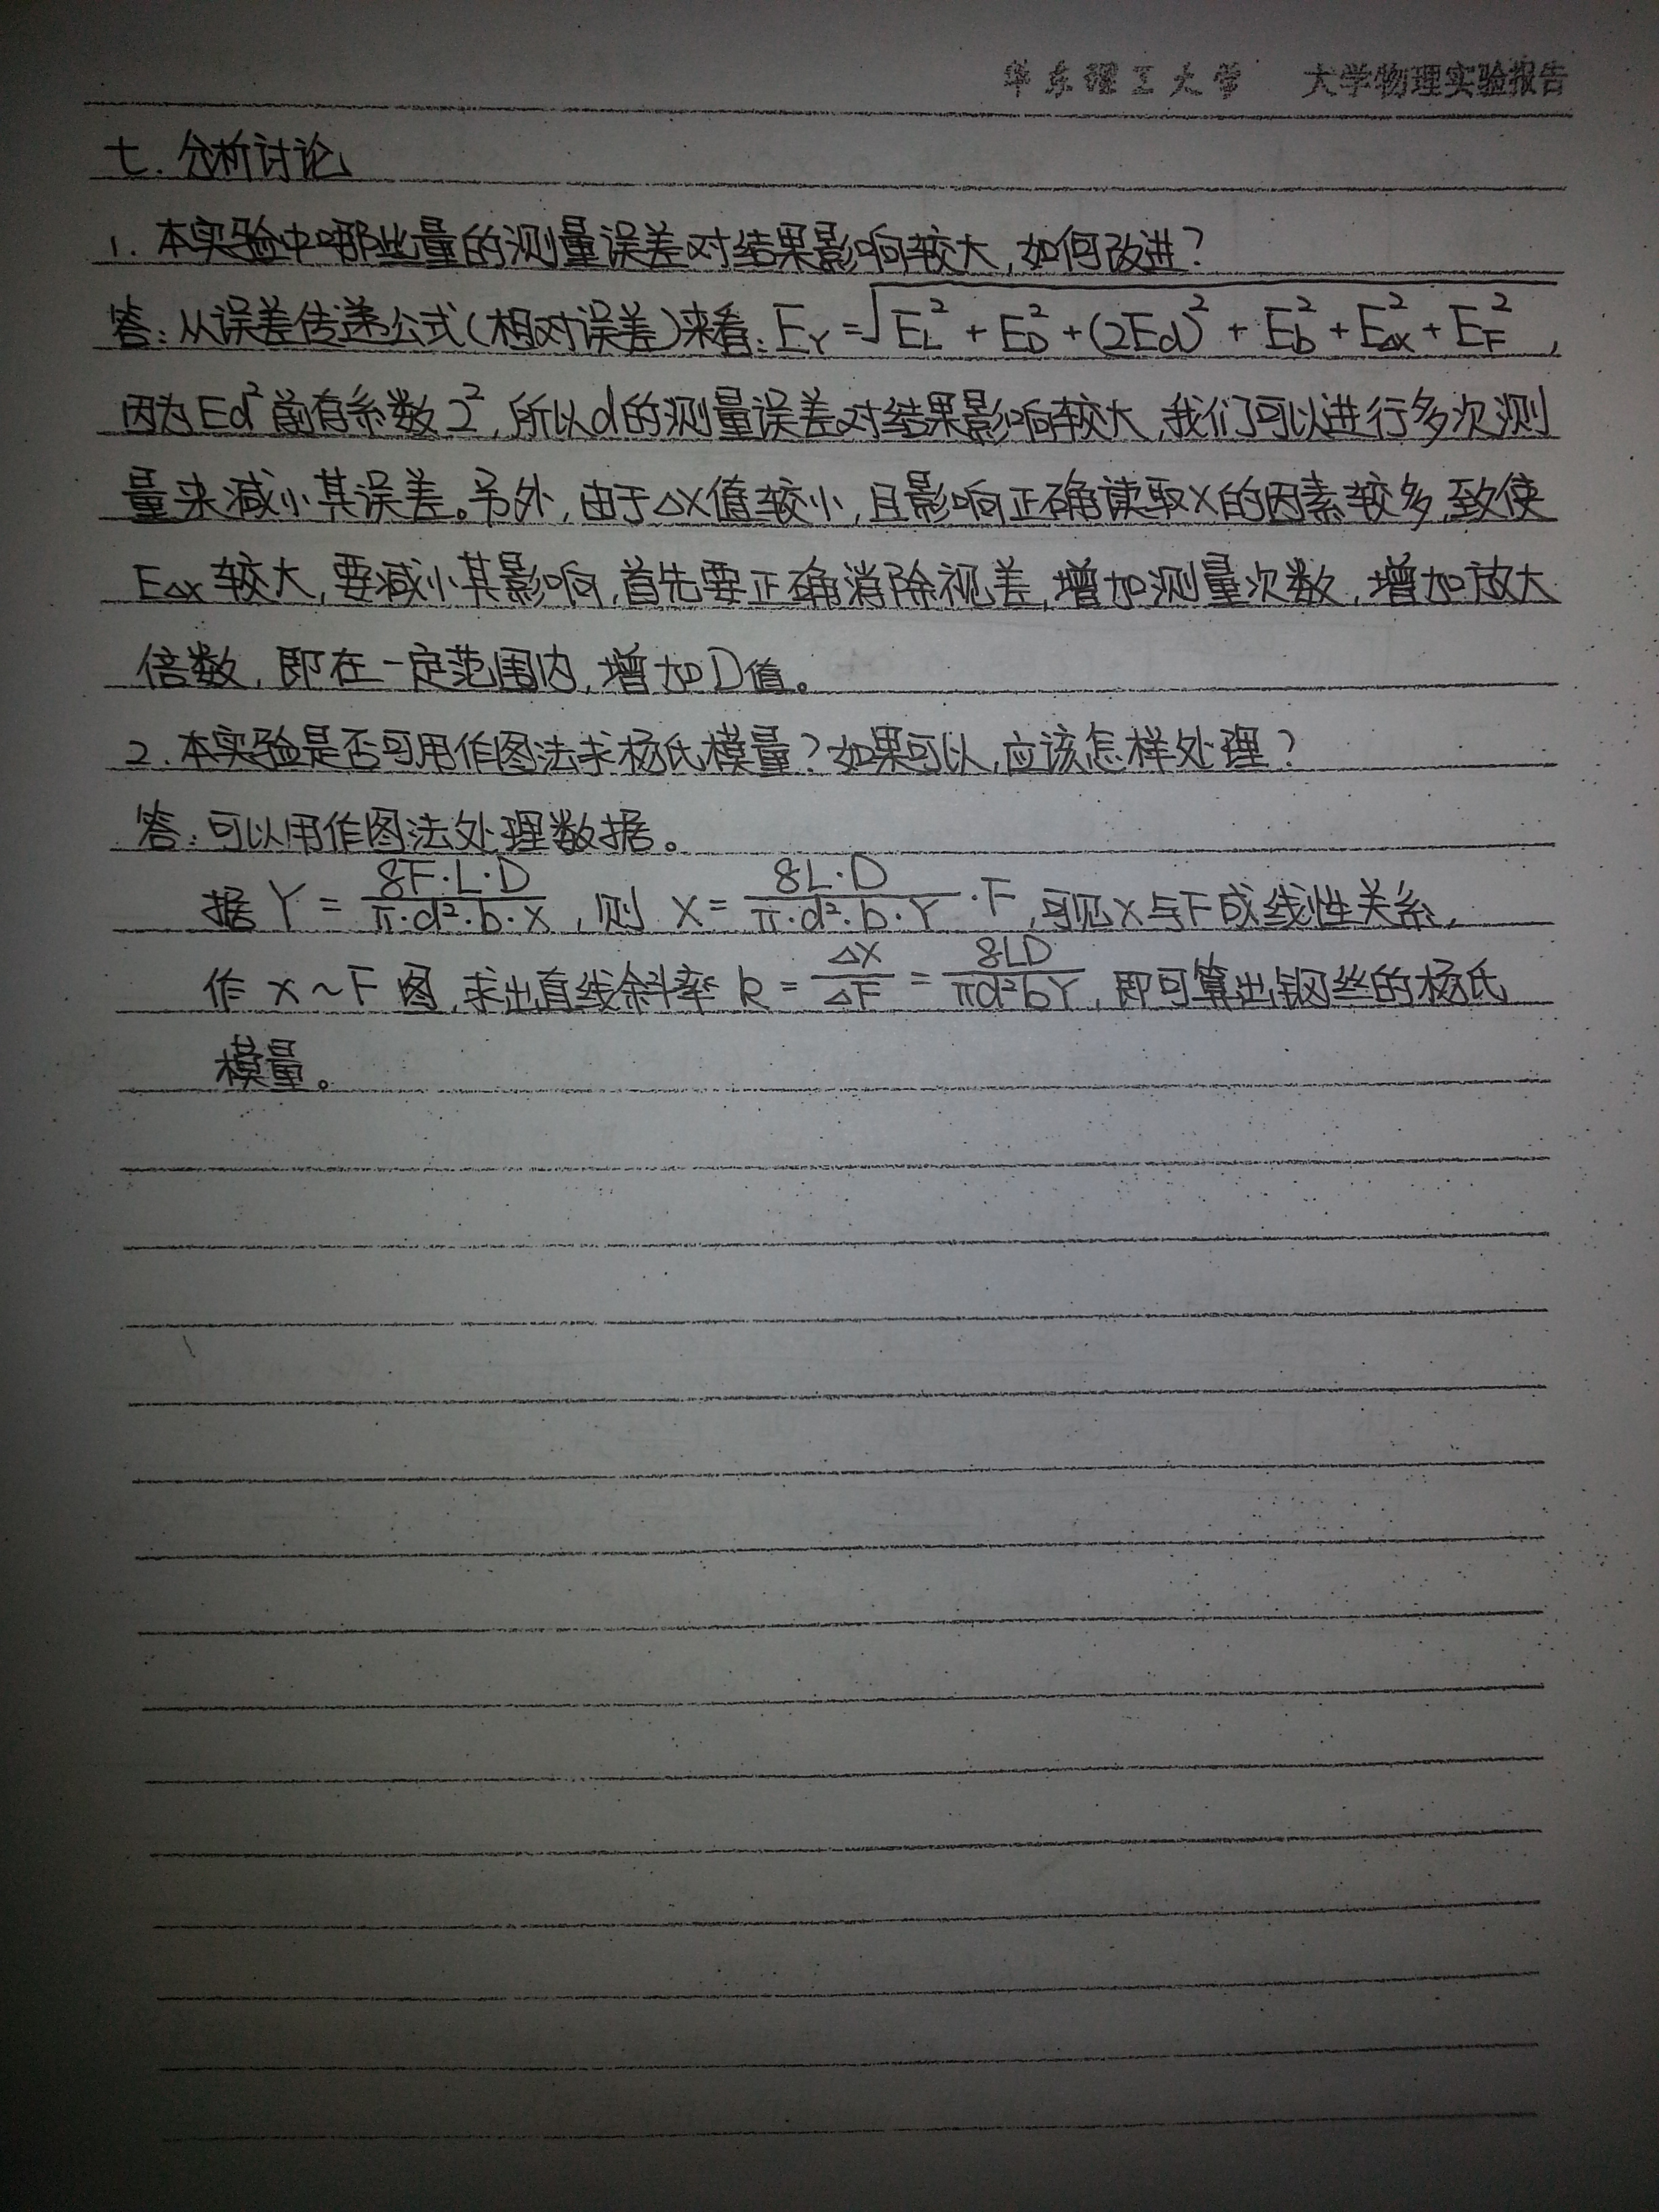 华东理工大学 大学物理实验报告
七. 分析讨论
1. 本实验中哪些量的测量误差对结果影响较大,如何改进?
答:从误差传递公式(相对误差)来看:E_Y=√(E_L²+E_D²+(2Ed)²+E_b²+E_Δx²+E_F²),
因为Ed²前有系数2²,所以d的测量误差对结果影响较大,我们可以进行多次测
量来减小其误差。另外,由于△X值较小,且影响正确读取X的因素较多,致使
E△x较大,要减小其影响,首先要正确消除视差,增加测量次数,增加放大
倍数,即在一定范围内,增加D值。
2.本实验是否可用作图法求杨氏模量?如果可以,应该怎样处理?
答:可以用作图法处理数据。
据 Y = 8F·L·D/(π·d²·b·X), 则 X = 8L·D/(π·d²·b·Y)·F,可见X与F成线性关系,
作 X~F 图,求出直线斜率 k = △X/△F = 8LD/(πd²bY),即可算出钢丝的杨氏
模量。